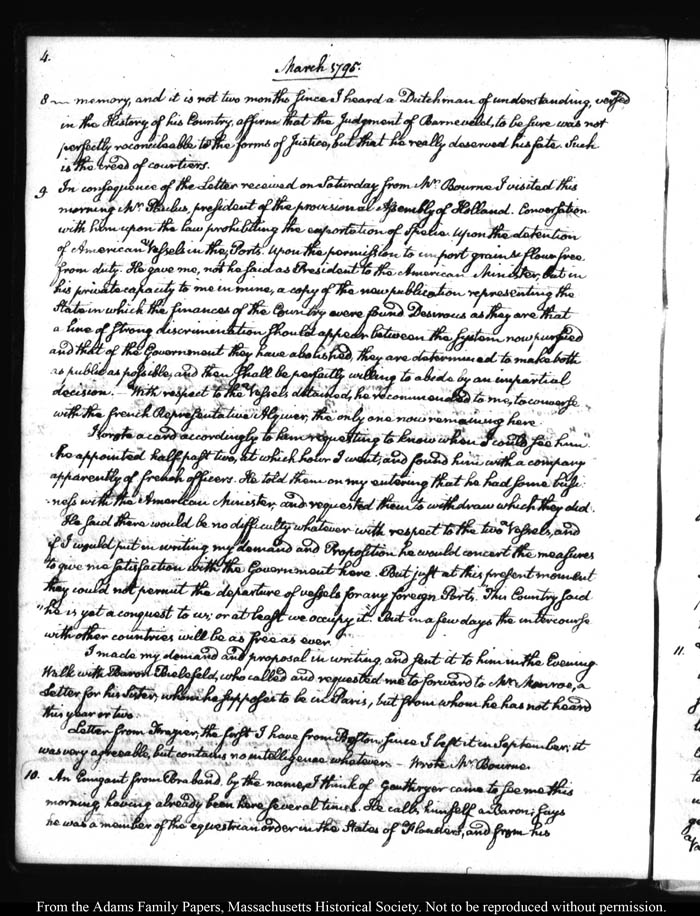 4.
March 1795.
8 memory, and it is not two months since I heard a Dutchman of understanding, versed
in the History of his Country, affirm that the Judgment of Barneveld, to be sure was not
perfectly reconcileable to the forms of Justice, but that he really deserved his fate. Such
is the creed of courtiers.
9. In consequence of the Letter received on Saturday from Mr. Bourne I visited this
morning Mr. Paulus, president of the provisional Assembly of Holland. Conversation
with him upon the law prohibiting the exportation of Specie. Upon the detention
of American Vessels in the Ports. Upon the permission to import grain & flour free
from duty. He gave me, not he said as President to the American Minister, but in
his private capacity to me in mine, a copy of the new publication representing the
State in which the finances of the Country were found. Desirous as they are that
a line of strong discrimination should appear between the System now pursued
and that of the Government they have abolished, they are determined to make both
as public as possible, and then shall be perfectly willing to abide by an impartial
decision. — With respect to the Vessels detained, he recommended to me, to converse
with the French Representative Alquier, the only one now remaining here.
I wrote a card accordingly to him requesting to know when I could see him
he appointed half past two, at which hour I went, and found him with a company
apparently of french officers. He told them on my entering that he had some busi-
ness with the American Minister, and requested them to withdraw which they did.
He said there would be no difficulty whatever with respect to the two Vessels, and
if I would put in writing my demand and Proposition he would concert the measures
to give me satisfaction with the Government here. But just at this present moment
they could not permit the departure of vessels for any foreign Ports. This Country said
"he is yet a conquest to us; or at least we occupy it. But in a few days the intercourse
with other countries will be as free as ever.
I made my demand and proposal in writing and sent it to him in the Evening.
Walk with Baron Bielefeld, who called and requested me to forward to Mr. Monroe, a
Letter for his Sister, whom he supposes to be in Paris, but from whom he has not heard
this year or two.
Letter from Frazier, the first I have from Boston since I left it in September; it
was very agreeable, but contains no intelligence whatever. — Wrote Mr. Bourne.
10. An Emigant from Braband, by the name, I think of came to see me this
morning, having already been here several times. He calls himself a Baron; says
he was a member of the equestrian order in the States of Flanders, and from his
11.
From the Adams Family Papers, Massachusetts Historical Society. Not to be reproduced without permission.